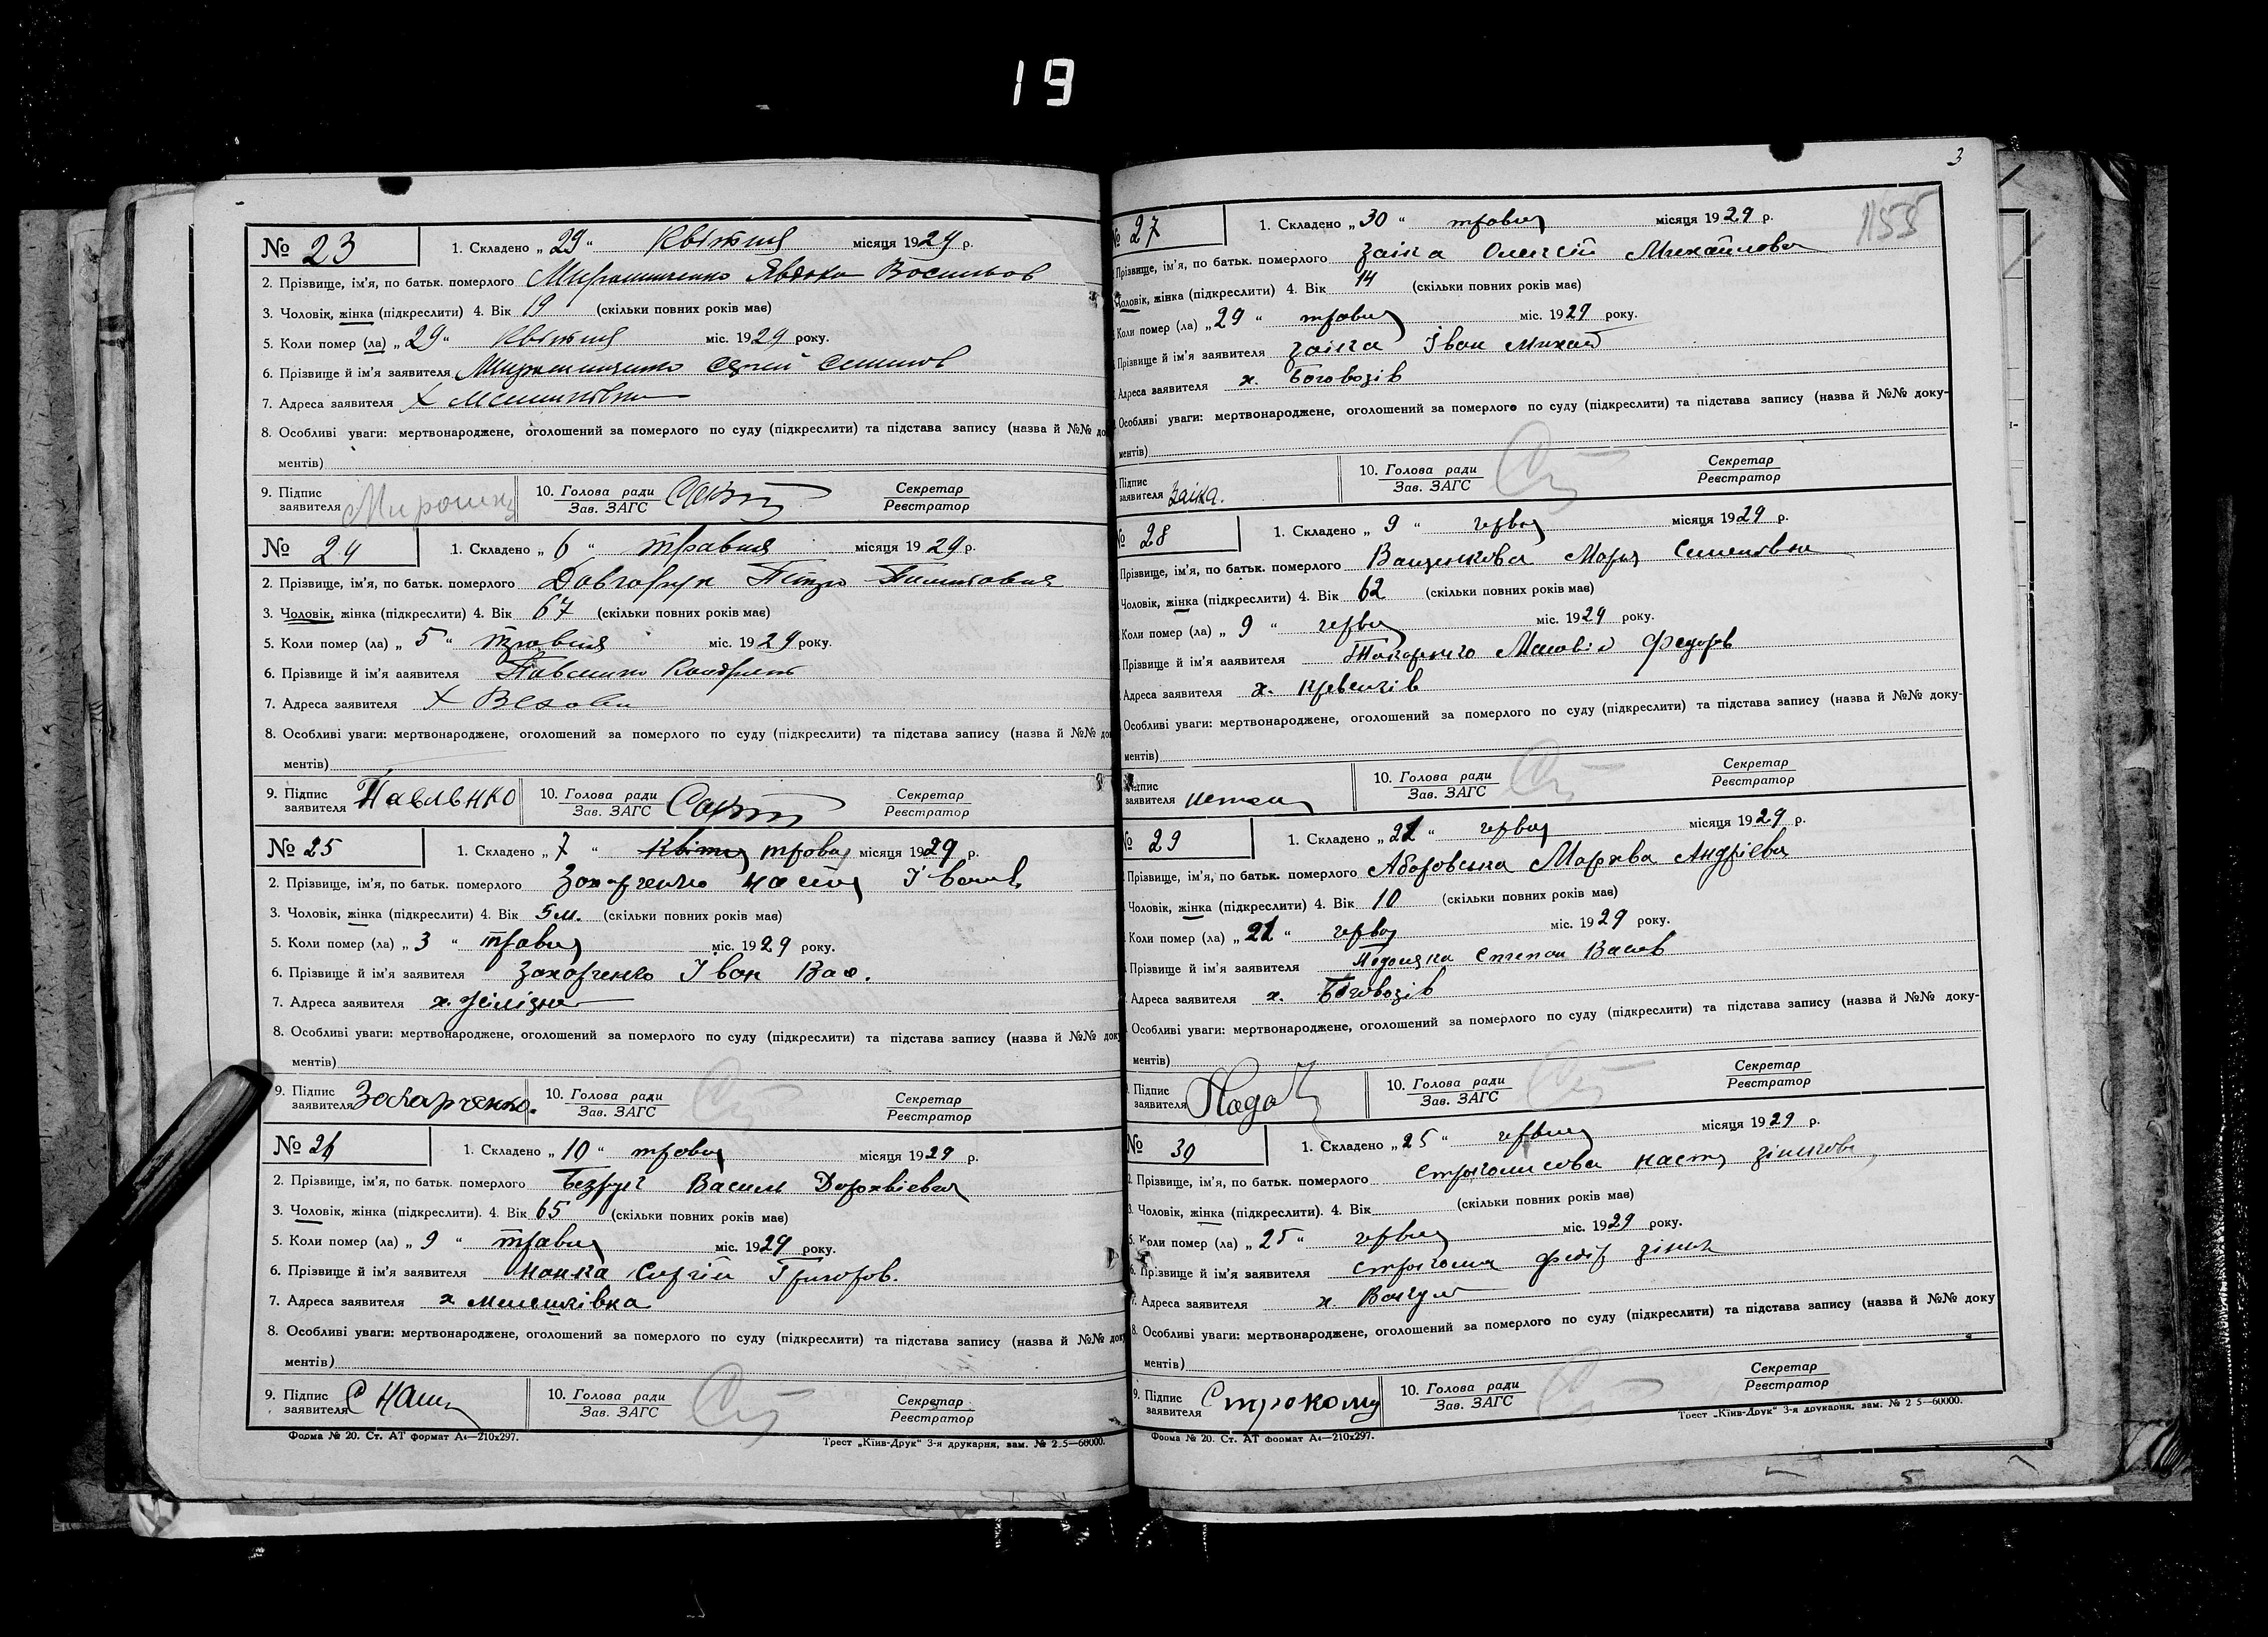 19
№ 23
1. Складено „ 29 “ Квітня місяця 1929 р.
2. Прізвище, ім'я, по батьк. померлого Мирошниченко Явдоха Восильов
3. Чоловік, жінка (підкреслити) 4. Вік 19 (скільки повних років має)
5. Коли помер (ла) „ 29 “ Квітня міс. 1929 року.
6. Прізвище й ім'я заявителя Мирошниченко Сергій
7. Адреса заявителя х
8. Особливі уваги: мертвонароджене, оголошений за померлого по суду (підкреслити) та підстава запису (назва й №№ до
ментів)
9. Підпис заявителя 10. Голова ради Зав. ЗАГС Секретар Реєстратор
№ 24
1. Складено „ 6 “ травня місяця 1929 р.
2. Прізвище, ім'я, по батьк. померлого
3. Чоловік, жінка (підкреслити) 4. Вік 67 (скільки повних років має)
5. Коли помер (ла) „ 5 “ травня міс. 1929 року.
6. Прізвище й ім'я заявителя Павленко Кондрат
7. Адреса заявителя х
8. Особливі уваги: мертвонароджене, оголошений за померлого по суду (підкреслити) та підстава запису (назва й №№ до
ментів)
9. Підпис заявителя Павлѣнко 10. Голова ради Зав. ЗАГС Секретар Реєстратор
№ 25
1. Складено „ 7 “ травня місяця 1929 р.
2. Прізвище, ім'я, по батьк. померлого Захарченко Настя Іванів
3. Чоловік, жінка (підкреслити) 4. Вік 5 м. (скільки повних років має)
5. Коли помер (ла) „ 3 “ травня міс. 1929 року.
6. Прізвище й ім'я заявителя Захарченко Іван Вас.
7. Адреса заявителя х.
8. Особливі уваги: мертвонароджене, оголошений за померлого по суду (підкреслити) та підстава запису (назва й №№ доку
ментів)
9. Підпис заявителя Захарченко. 10. Голова ради Зав. ЗАГС Секретар Реєстратор
№ 26
1. Складено „ 10 “ травня місяця 1929 р.
2. Прізвище, ім'я, по батьк. померлого Безрук Василь
3. Чоловік, жінка (підкреслити). 4. Вік 65 (скільки повних років має)
5. Коли помер (ла) „ 9 “ травня міс. 1929 року.
6. Прізвище й ім'я заявителя Сергій Григоров.
7. Адреса заявителя х
8. Особливі уваги: мертвонароджене, оголошений за померлого по суду (підкреслити) та підстава запису (назва й №№ доку
ментів)
9. Підпис заявителя 10. Голова ради Зав. ЗАГС Секретар Реєстратор
Форма № 20. Ст. АТ формат А4—210х297.
Трест „Київ-Друк“ 3-я друкарня, зам. № 2 5—60000.
3
1155
№ 27
1. Складено „ 30 “ травня місяця 1929 р.
Прізвище, ім'я, по батьк. померлого Заіка Олексій Михайлов
Чоловік, жінка (підкреслити) 4. Вік 14 (скільки повних років має)
Коли помер (ла) „ 29 “ травня міс. 1929 року.
Прізвище й ім'я заявителя Заіка Іван Михай
Адреса заявителя х. Боговозів
Особливі уваги: мертвонароджене, оголошений за померлого по суду (підкреслити) та підстава запису (назва й №№ доку-
ментів)
Підпис заявителя Заіка. 10. Голова ради Зав. ЗАГС Секретар Реєстратор
№ 28
1. Складено „ 9 “ червня місяця 1929 р.
Прізвище, ім'я, по батьк. померлого Ващенкова Марія Семенівна
Чоловік, жінка (підкреслити) 4. Вік 62 (скільки повних років має)
Коли помер (ла) „ 9 “ червня міс. 1929 року.
Прізвище й ім'я заявителя Федоров
Адреса заявителя х.
Особливі уваги: мертвонароджене, оголошений за померлого по суду (підкреслити) та підстава запису (назва й №№ доку-
ментів)
Підпис заявителя 10. Голова ради Зав. ЗАГС Секретар Реєстратор
№ 29
1. Складено „ 21 “ червня місяця 1929 р.
Прізвище, ім'я, по батьк. померлого Аборовська Мархва Андрієва
Чоловік, жінка (підкреслити) 4. Вік 10 (скільки повних років має)
Коли помер (ла) „ 21 “ червня міс. 1929 року.
Прізвище й ім'я заявителя Степан Васил
Адреса заявителя х. Боговозів
Особливі уваги: мертвонароджене, оголошений за померлого по суду (підкреслити) та підстава запису (назва й №№ доку-
ментів)
Підпис заявителя 10. Голова ради Зав. ЗАГС Секретар Реєстратор
№ 30
1. Складено „ 25 “ червня місяця 1929 р.
2. Прізвище, ім'я, по батьк. померлого Настя
3. Чоловік, жінка (підкреслити). 4. Вік (скільки повних років має)
5. Коли помер (ла) „ 25 “ червня міс. 1929 року.
6. Прізвище й ім'я заявителя Федір
7. Адреса заявителя х.
8. Особливі уваги: мертвонароджене, оголошений за померлого по суду (підкреслити) та підстава запису (назва й №№ доку
ментів)
9. Підпис заявителя 10. Голова ради Зав. ЗАГС Секретар Реєстратор
Форма № 20. Ст. АТ формат А4—210х297.
Трест „Київ-Друк“ 3-я друкарня, зам. № 2 5—60000.